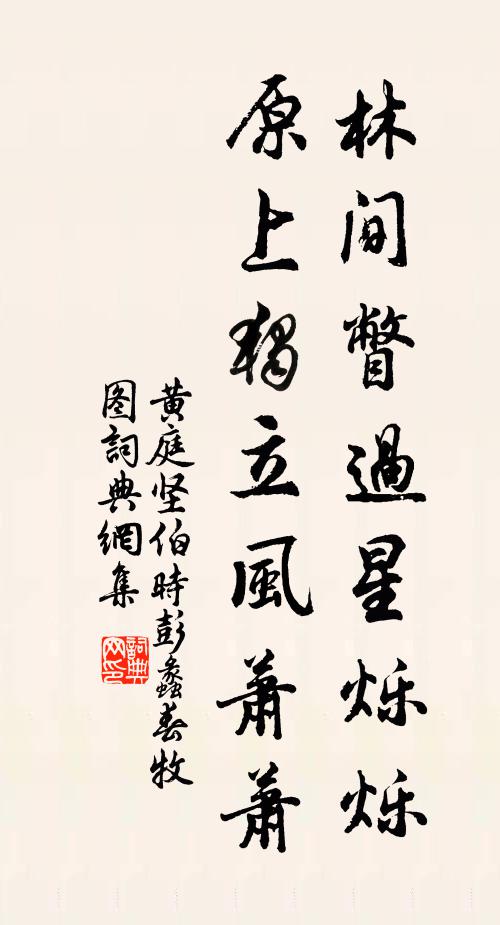 林间瞥過星烁烁
原上獨立風蕭蕭
黄庭坚伯時彭蠡春牧
图詞典網集
詞典网印